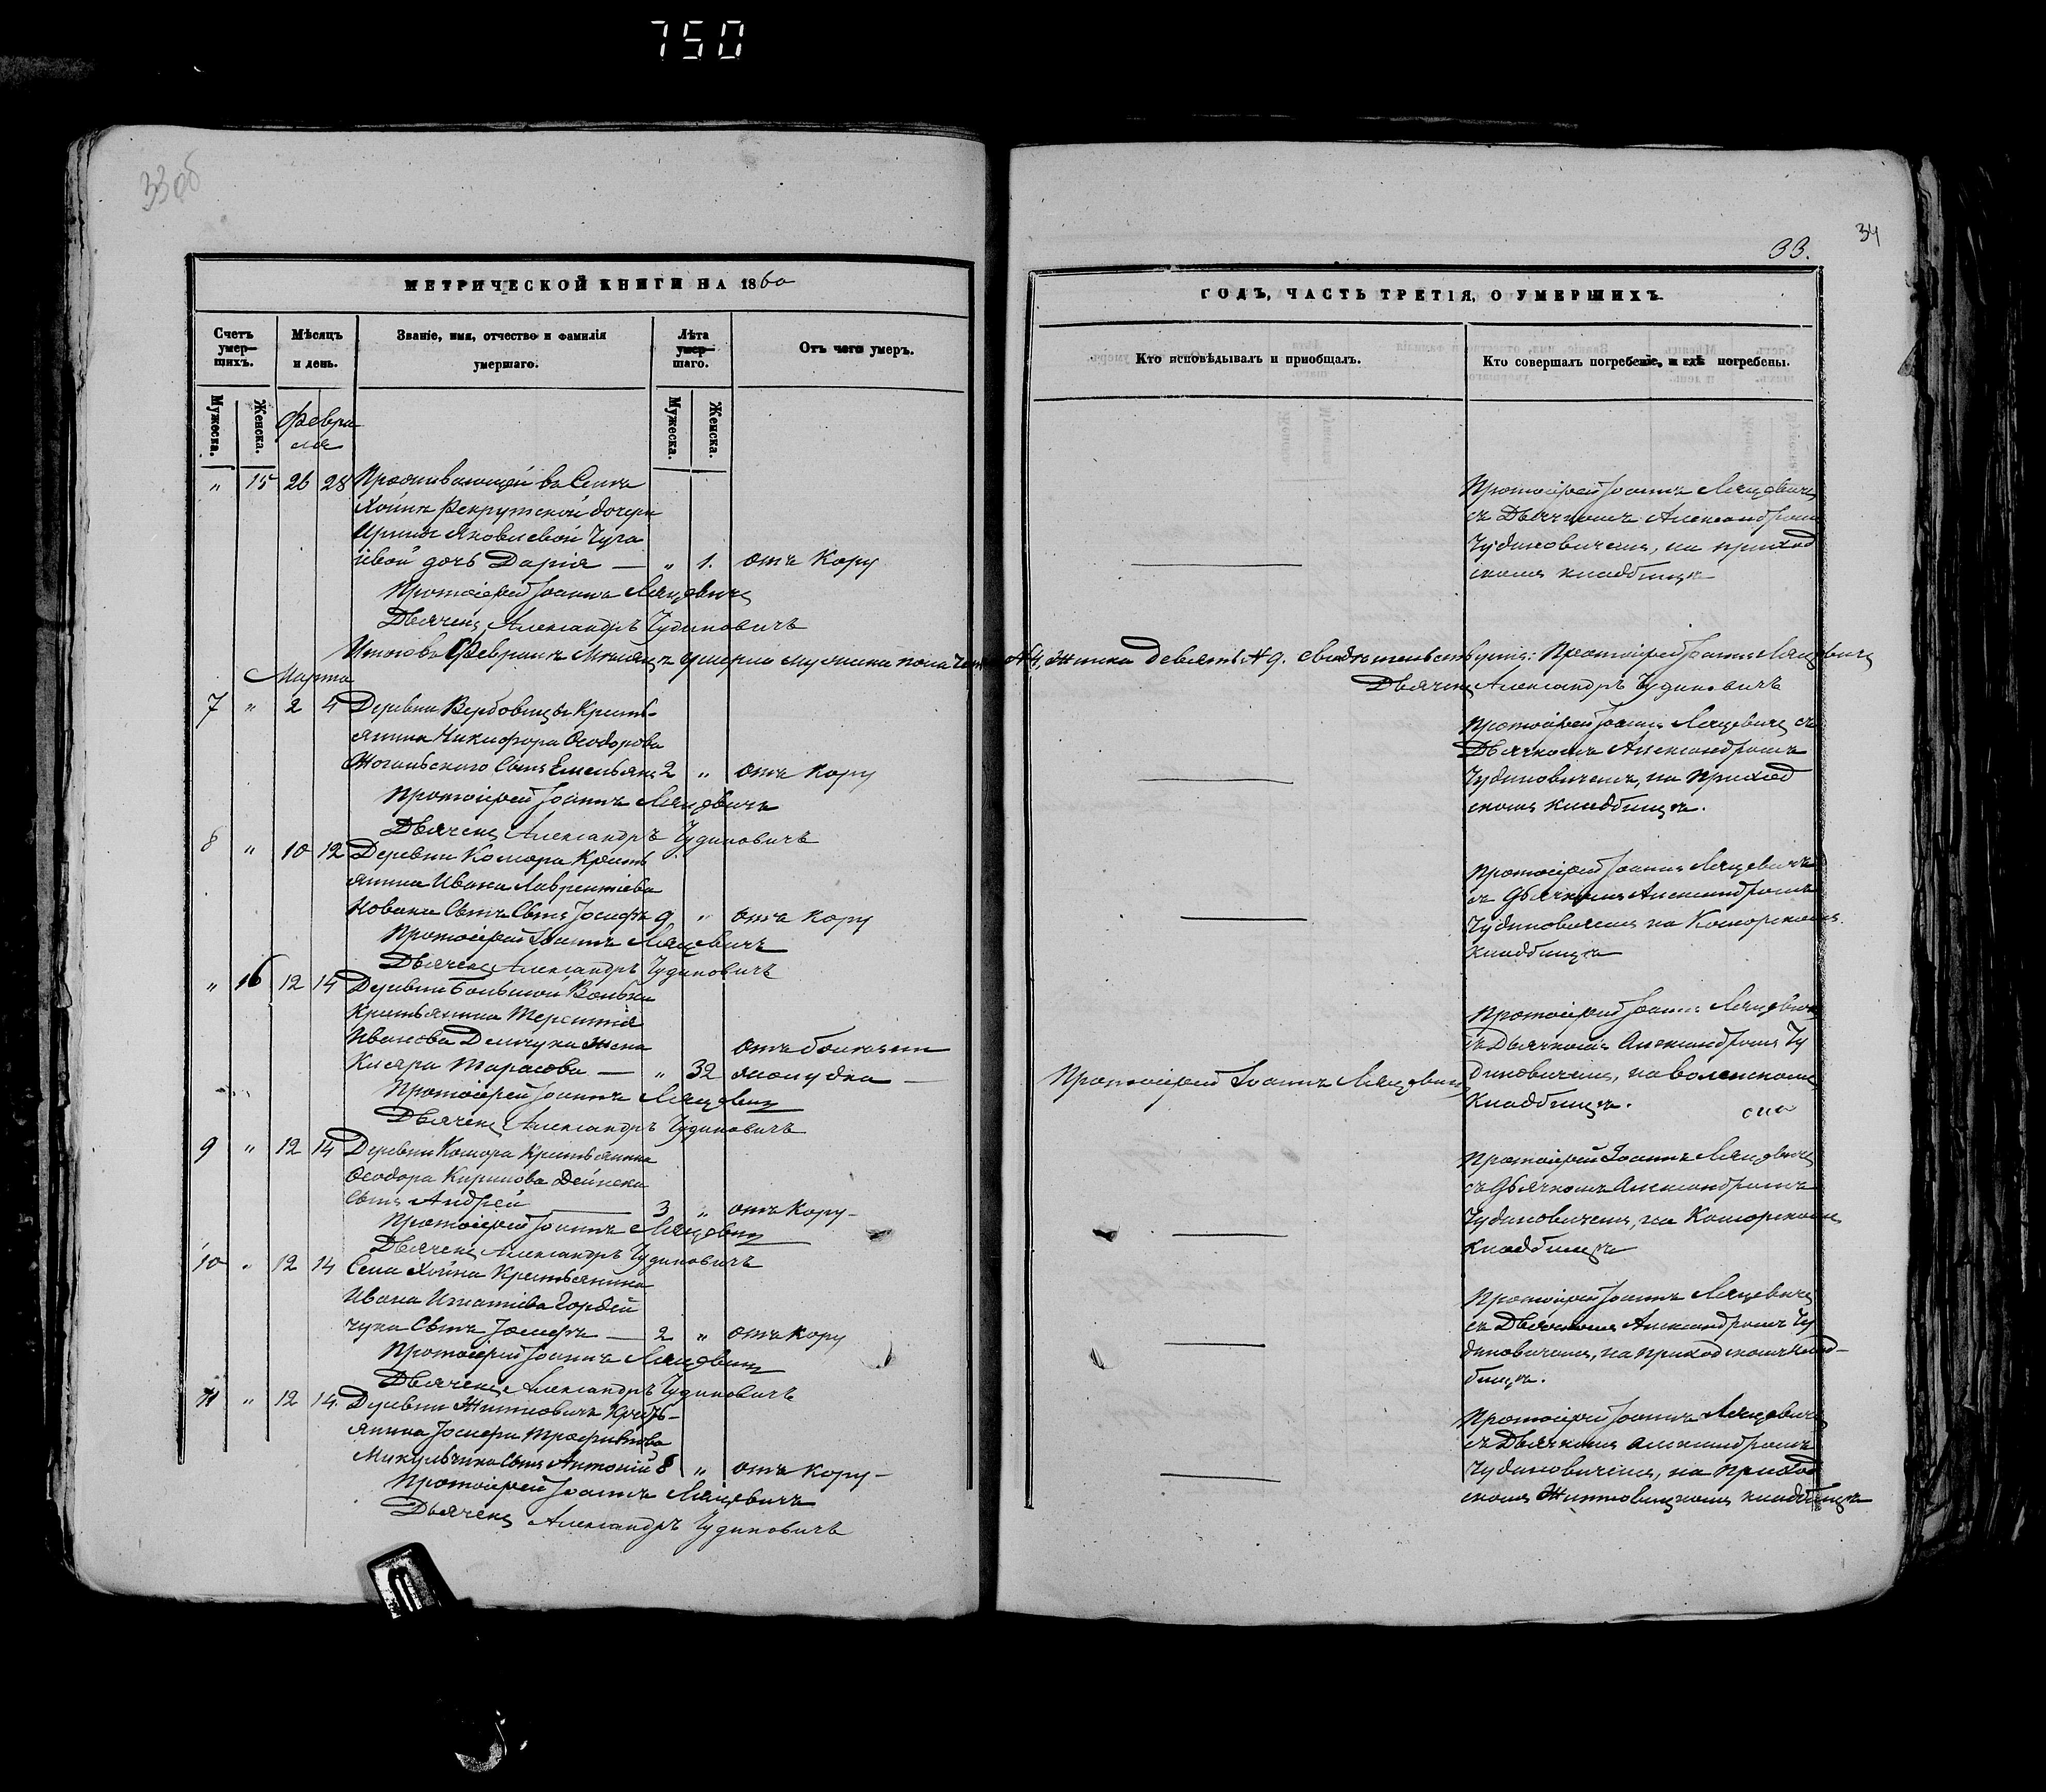 750
33об
МЕТРИЧЕСКОЙ КНИГИ НА 1860
Счетъ умерших.
Мѣсяцъ и день.
Званіе, имя, отчество и фамилія умершаго.
Лѣта умершаго.
Отъ чего умеръ.
Мужеска.
Женска.
Мужеска.
Женска.
Февра
ля
" 15 26 28 Проживающей въ Селѣ
Хойнѣ Рекрутской дочери
Ирины Яковлевой
дочь Дарія — " 1. отъ Кору
Протоіерей Іоаннъ Ляцевичъ
Дьячекъ Александръ Чудиновичъ
Итого въ Февралѣ Мѣсяцѣ умерло мужеска пола
Марта
7 " 2 4 Деревни Вербовичь Кресть-
янина Никифора Ѳеодорова
Сынъ Емельянъ 2 " отъ Кору
Протоіерей Іоаннъ Ляцевичъ
Дьячекъ Александръ Чудиновичъ
8 " 10 12 Деревни Комора Кресть
янина Ивана Лаврентіева
Новика Сынъ Іосифъ 9 " отъ кору
Протоіерей Іоаннъ Ляцевичъ
Дьячекъ Александръ Чудиновичъ
" 16 12 14 Деревни Большой Вольки
Крестьянина Терентія
Иванова Демчука жена
Тарасова — " 32 отъ болезни желудка —
Протоіерей Іоаннъ Ляцевичъ
Дьячекъ Александръ Чудиновичъ
9 " 12 14 Деревни Комора Крестьянина
Ѳеодора Кирилова Дейнеки
Сынъ Андрей 3 " отъ Кору-
Протоіерей Іоаннъ Ляцевичъ
Дьячекъ Александръ Чудиновичъ
10 " 12 14 Села Хойна Крестьянина
Ивана Игнатіева Гордей
чука Сынъ Іосифъ — 2 " отъ кору
Протоіерей Іоаннъ Ляцевичъ
Дьячекъ Александръ Чудиновичъ
11 " 12 14. Деревни Житновичь Кресть-
янина Іосифа Трофимова
Микульчика Сынъ Антоній 8 " отъ Кору-
Протоіерей Іоаннъ Ляцевичъ
Дьячекъ Александръ Чудиновичъ
34
33.
ГОДЪ, ЧАСТЬ ТРЕТІЯ, О УМЕРШИХЪ.
Кто исповѣдывалъ и пріобщалъ.
Кто совершалъ погребеніе, и гдѣ погребены.
Протоіерей Іоаннъ Ляцевичъ
съ Дьячкомъ Александромъ
Чудиновичемъ, на приход
скомъ кладбищѣ
№ 4, Женска девять № 9. Свидѣтельствуемъ: Протоіерей Іоаннъ Ляцевичъ
Дьячекъ Александръ Чудиновичъ
Протоіерей Іоаннъ Ляцевичъ съ
Дьячкомъ Александромъ
Чудиновичемъ, на Приход
скомъ кладбищѣ.
Протоіерей Іоаннъ Ляцевичъ
съ дьячкомъ Александромъ
Чудиновичемъ на Коморскомъ
кладбищѣ
Протоіерей Іоаннъ Ляцевичъ
Протоіерей Іоаннъ Ляцевичъ
съ Дьячкомъ Александромъ Чу
диновичемъ, на
Кладбищѣ.
Протоіерей Іоаннъ Ляцевичъ
съ дьячкомъ Александромъ
Чудиновичемъ, на Коморскомъ
кладбищѣ
Протоіерей Іоаннъ Ляцевичъ
съ Дьячкомъ Александромъ Чу
диновичемъ, на приходскомъ клад-
бищѣ.
Протоіерей Іоаннъ Ляцевичъ
съ Дьячкомъ Александромъ
Чудиновичемъ, на Приход
скомъ Житновицкомъ кладбищѣ